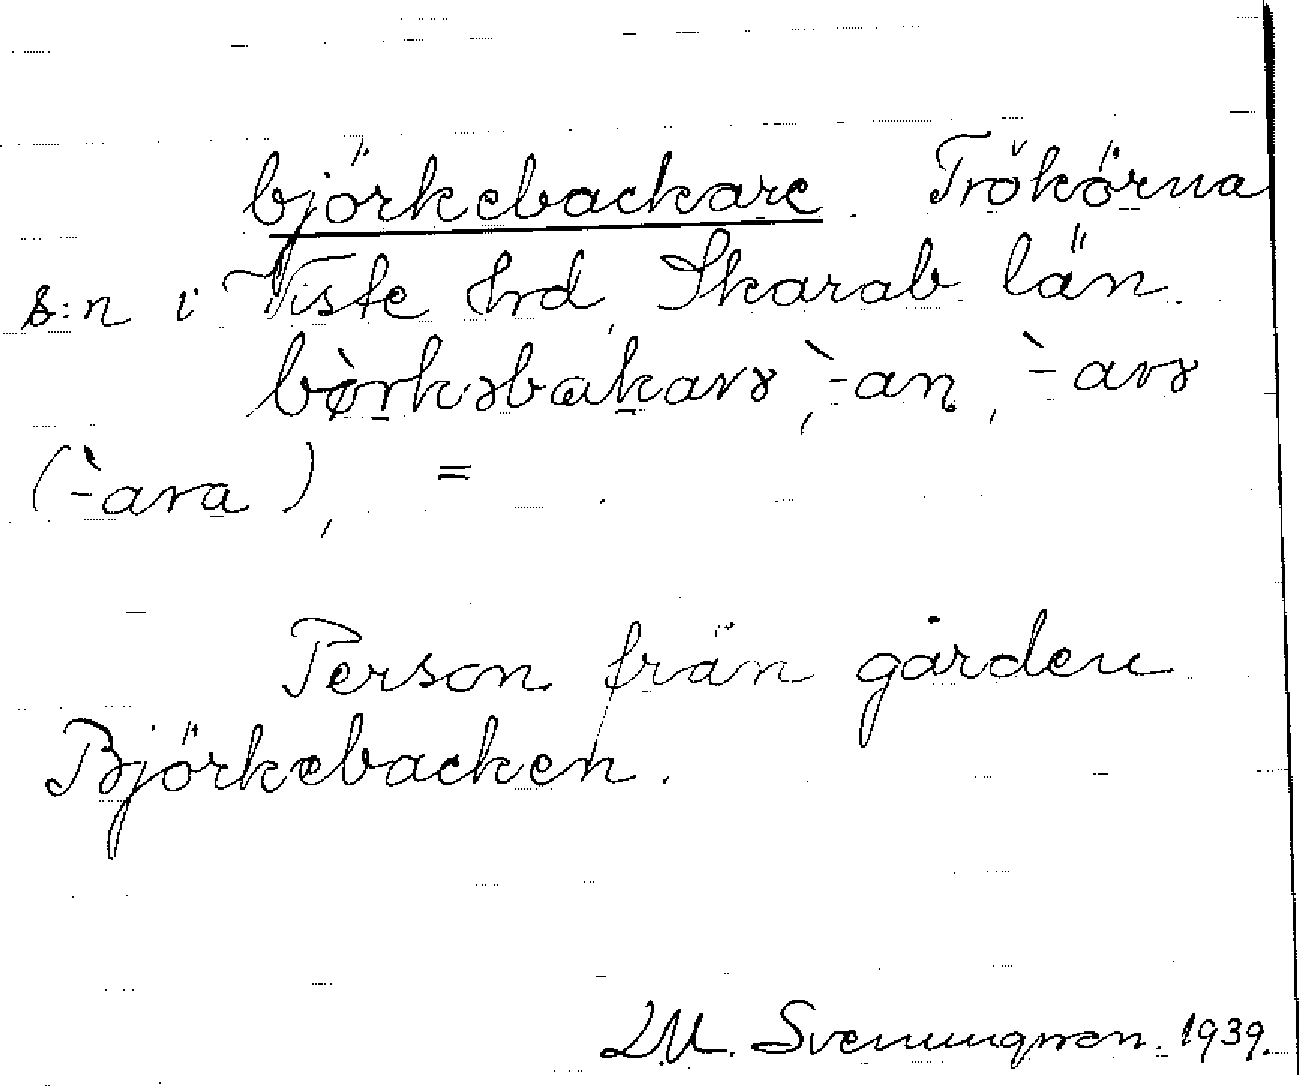 björkebackare. Trökörna
s:n i Viste hrd, Skarab. län.
bø̀rkəbakarə, -̀an, -̀arə
(-̀ara), =
Person från gården
Björkebacken.
L.M. Svenungsson. 1939.